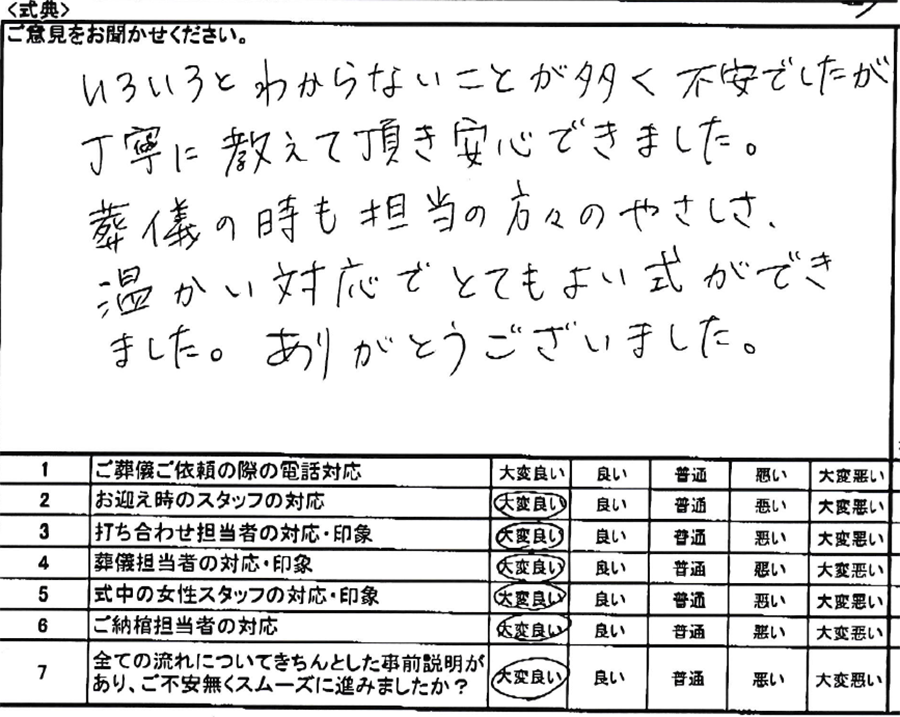 <式典>
ご意見をお聞かせください。
いろいろとわからないことが多く不安でしたが
丁寧に教えて頂き安心できました。
葬儀の時も担当の方々のやさしさ、
温かい対応でとてもよい式ができ
ました。ありがとうございました。
1 ご葬儀ご依頼の際の電話対応 大変良い 良い 普通 悪い 大変悪い
2 お迎え時のスタッフの対応 大変良い 良い 普通 悪い 大変悪い
3 打ち合わせ担当者の対応・印象 大変良い 良い 普通 悪い 大変悪い
4 葬儀担当者の対応・印象 大変良い 良い 普通 悪い 大変悪い
5 式中の女性スタッフの対応・印象 大変良い 良い 普通 悪い 大変悪い
6 ご納棺担当者の対応 大変良い 良い 普通 悪い 大変悪い
7 全ての流れについてきちんとした事前説明が
あり、ご不安無くスムーズに進みましたか？ 大変良い 良い 普通 悪い 大変悪い